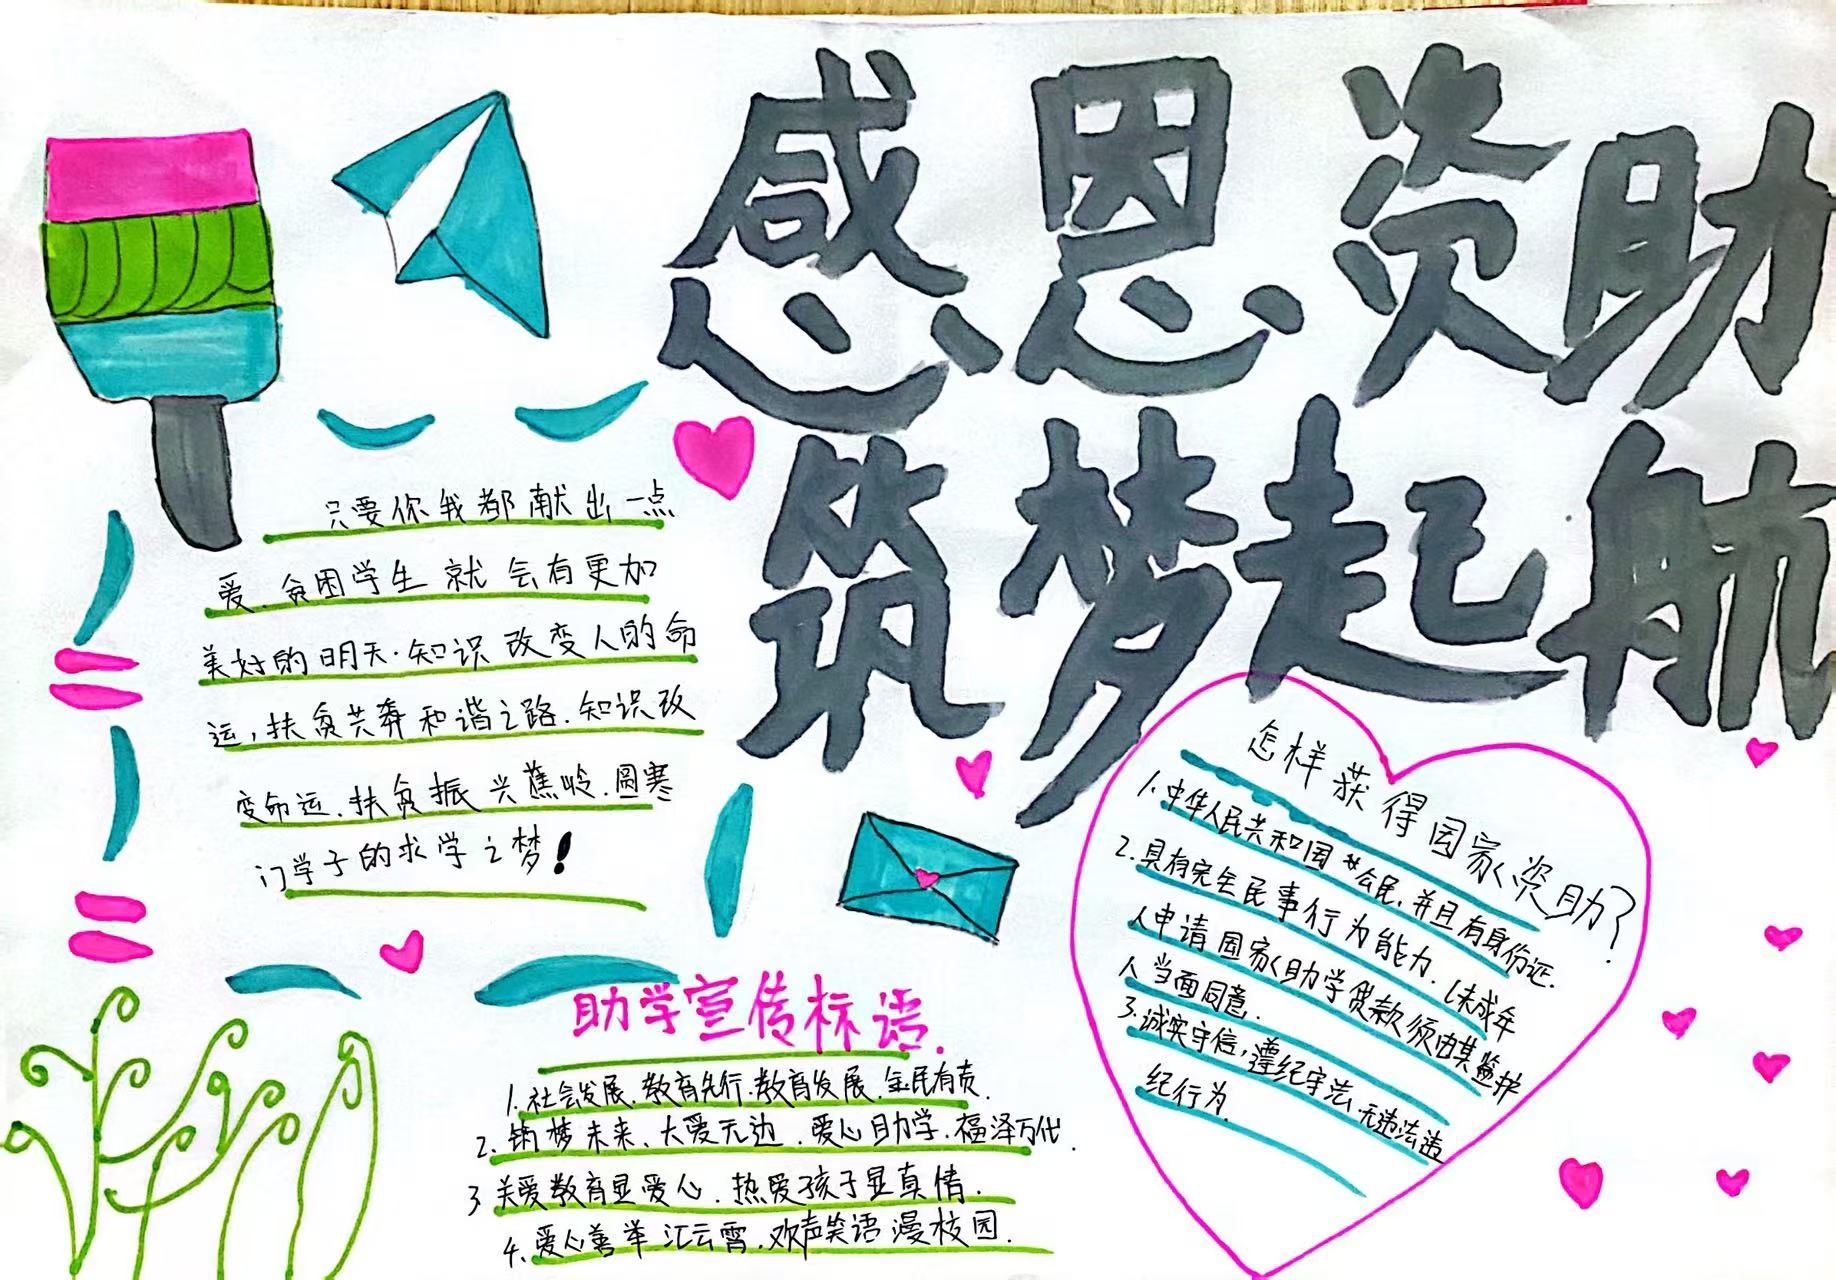 感恩资助
筑梦起航
只要你我都献出一点
爱.贫困学生就会有更加
美好的明天.知识改变人的命
运,扶贫共奔和谐之路.知识改
变命运.扶贫振兴蕉岭.圆寒
门学子的求学之梦!
助学宣传标语.
1.社会发展.教育先行.教育发展.全民有责.
2.筑梦未来、大爱无边.爱心助学.福泽万代.
3关爱教育显爱心.热爱孩子显真情.
4.爱心善举汇云霄.欢声笑语漫校园.
怎样获得国家资助?
1.中华人民共和国公民,并且有身份证.
2.具有完全民事行为能力.(未成年
人申请国家助学贷款须由其监护
人当面同意.
3.诚实守信,遵纪守法.无违法违
纪行为.